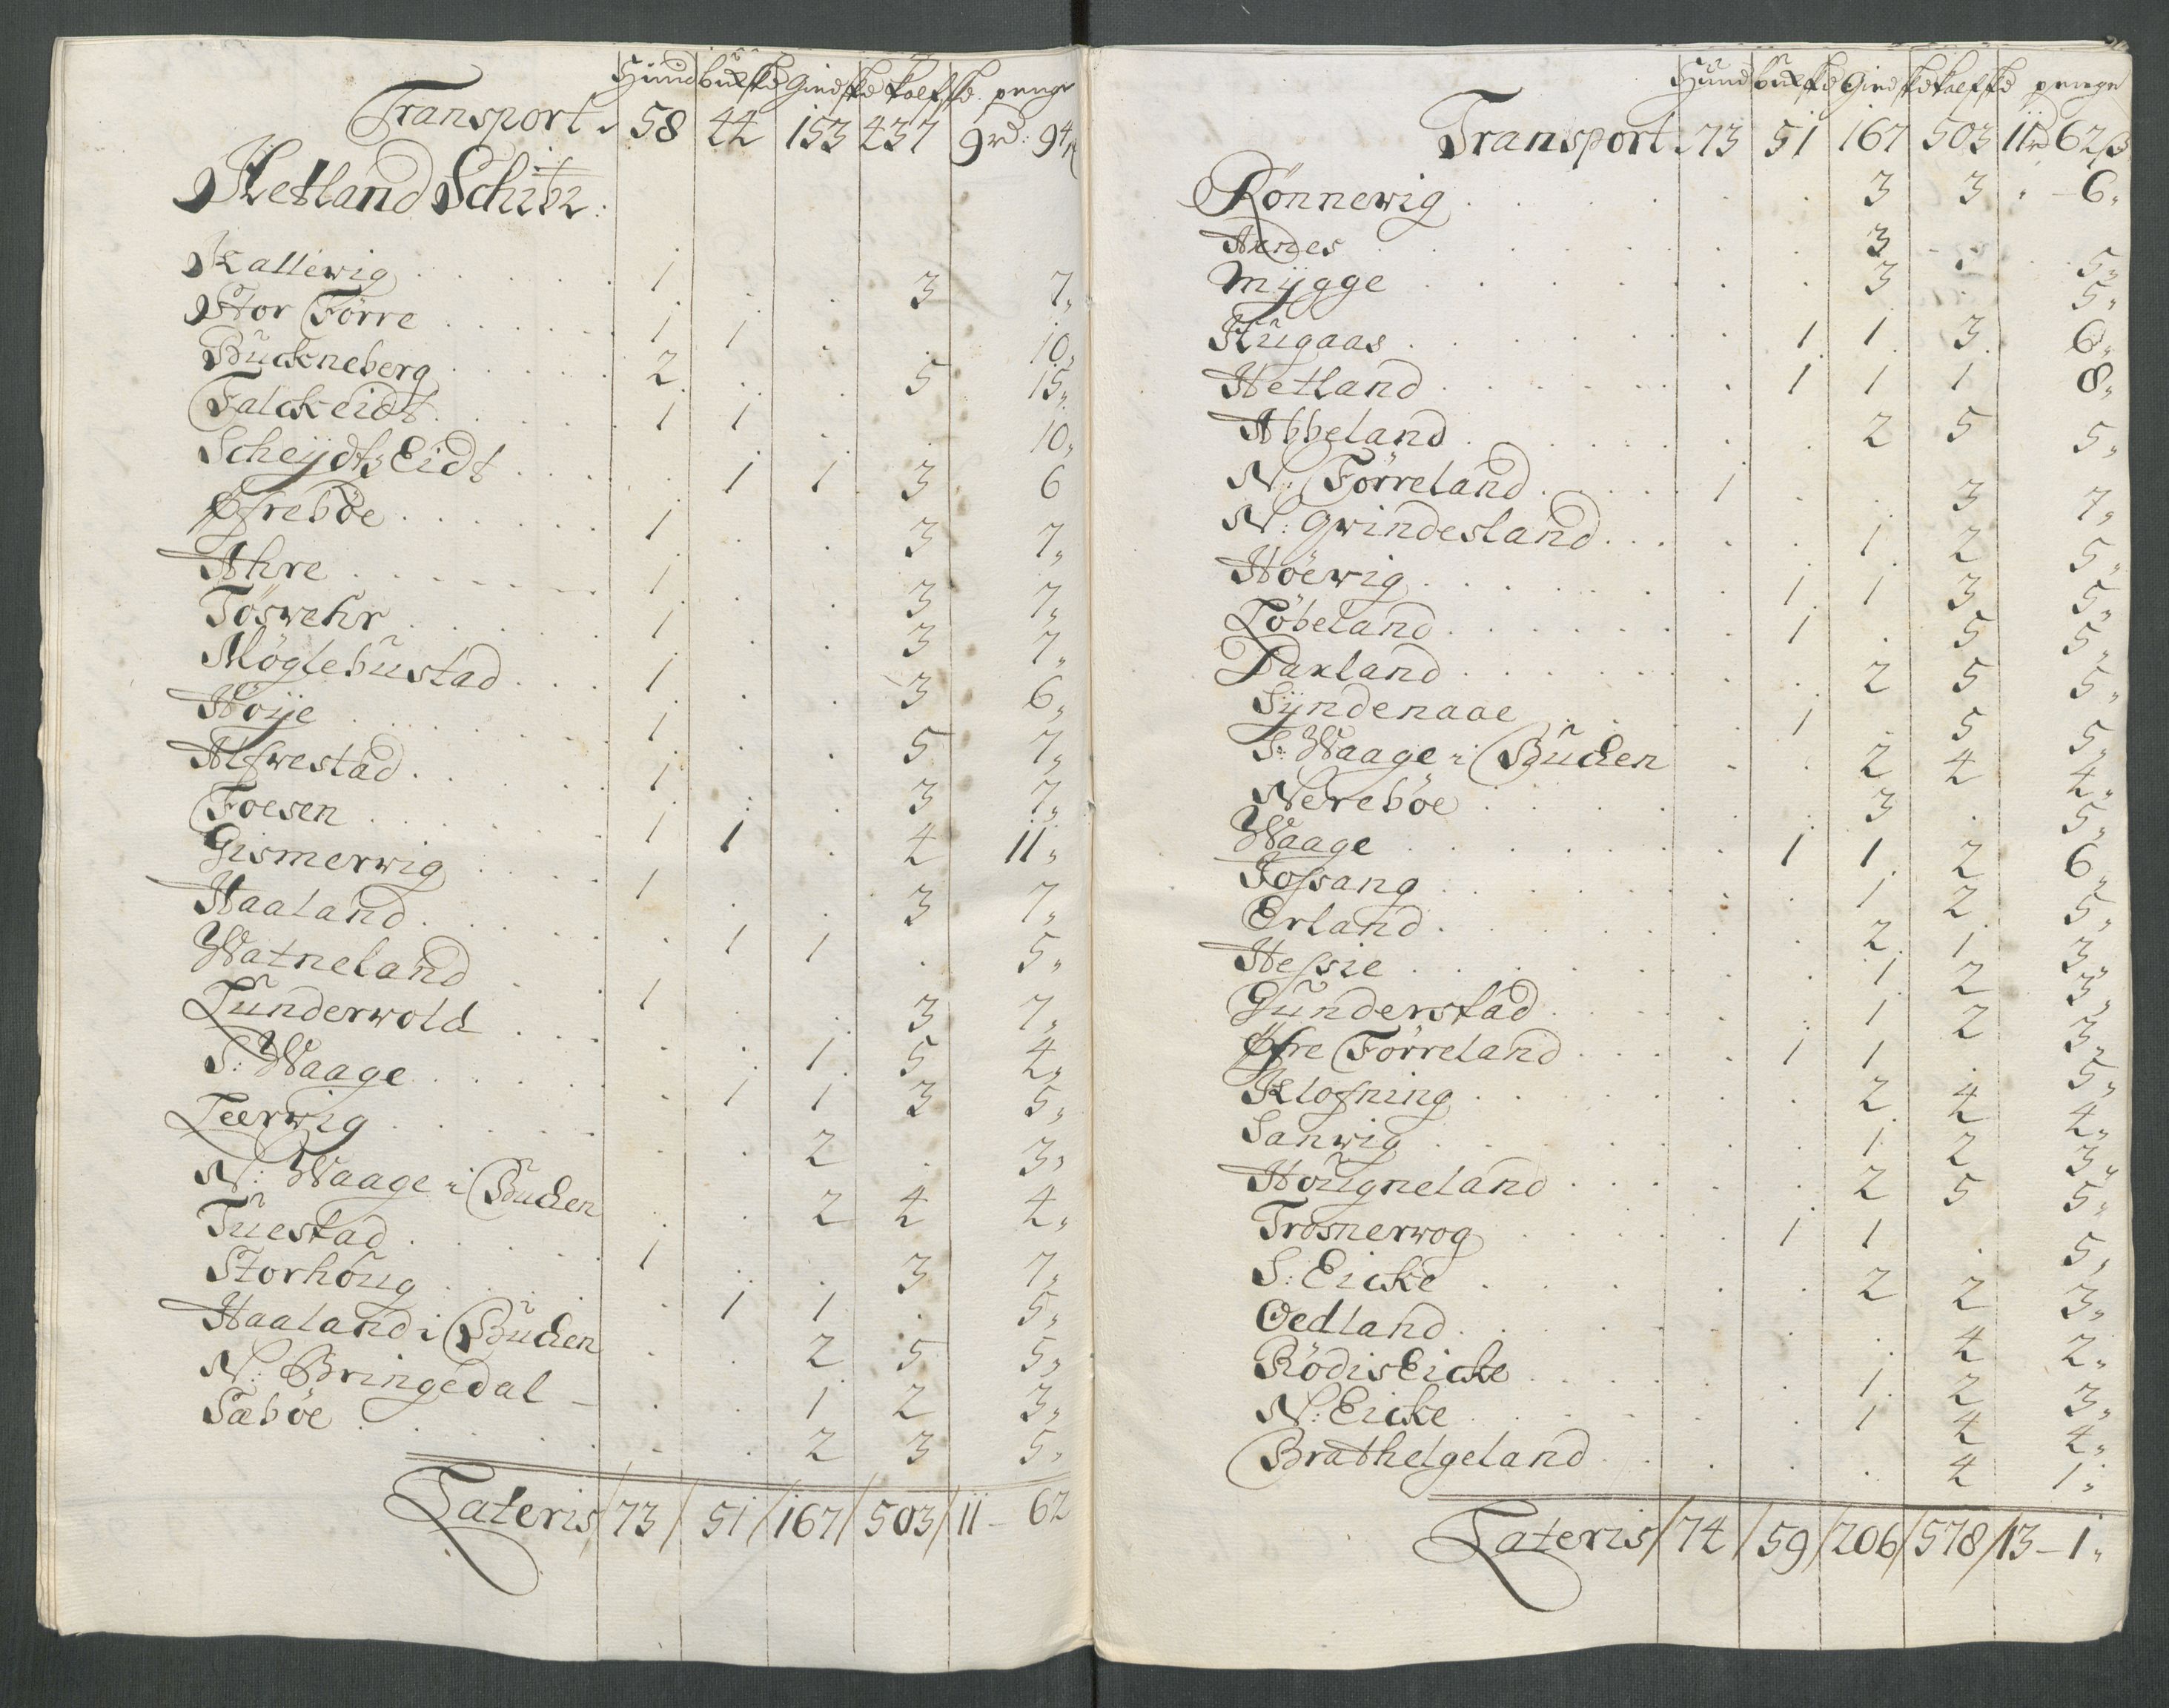 Hund buckskd Giedskd Kalfskd penge
Transport. 58 44 153 437 9rd: 94ß
Hetland Schibr:
Kallewig . . . 1 . . 3 7"
Stor Førre . . . 1 1 . . 10"
Buckneberg . . . 2 . . 5 15"
Falckeidt . . . 1 1 . . 10"
ScheijdtzEidt . . . . 1 1 3 6
Øfrebøe . . . 1 . . 3 7"
Ahre . . . 1 . . 3 7"
Tøswehr . . . 1 . . 3 7"
Møglebustad . . . 1 . . 3 6"
Høije . . . 1 . . 5 7"
Alfwestad . . . 1 . . 3 7"
Foesen . . . 1 1 . 4 11"
Gismerwig . . . 1 . . 3 7"
Haaland . . . . 1 1 . 5"
Watneland . . . 1 . . 3 7"
Lunderwold . . . . . 1 5 4"
S: Waage . . . . 1 1 3 5"
Leerwig . . . . . 2 . 3"
N: Waage i Bucken . . 2 4 4"
Tuestad . . . 1 . . 3 7"
Storhoug . . . . 1 1 . 5"
Haaland i Bucken . . 2 5 5"
N: Bringedal - . . 1 2 3"
Sæbøe . . . . . 2 3 5"
Lateris/ 73/ 51/ 167/ 503/ 11 - 62
Hund buckskd Giedskd Kalfskd penge
Transport. 73 51 167 503 11rd 62ß
Rönnewig . . . . . 3 3 . - 6"
Aenes . . . . . 3 . . 5"
Mÿgge . . . . . 3 . 5"
Stugaas . . . . 1 1 3 6"
Hetland . . . . 1 1 1 8"
Abbeland . . . . . 2 5 5"
N: Förreland . . . 1 . . 3 7"
N: Grindesland . . . . . 1 2 5"
Höewig . . . . 1 1 3 5"
Löbeland . . . . 1 . 5 5"
Daxland . . . . . 2 5 5"
Sÿndenaae . . . . 1 . 5 5"
S: Waage i Bucken - . 2 4 4"
Nerebøe . . . . . 3 . 5"
Waage . . . . 1 1 2 6"
Fossang . . . . . 1 2 5"
Erland . . . . . 2 1 3"
Hessie . . . . . 1 2 3"
Gunderstad . . . . . 1 2 3"
Øfre Förreland . . . . 1 1 . 5"
Klofning . . . . . 2 4 4"
Sanwig . . . . . 1 2 3"
Hougneland . . . . . 2 5 5"
Trosnerwog . . . . 1 1 . 5"
S: Eicke . . . . . 2 2 3"
Oedland . . . . . . 4 2"
RödisEicke . . . . . 1 2 3"
N: Eicke . . . . . 1 4 4"
Brathelgeland . . . . . . 4 1"
Lateris/ 74/ 59/ 206/ 578/ 13 - 1"